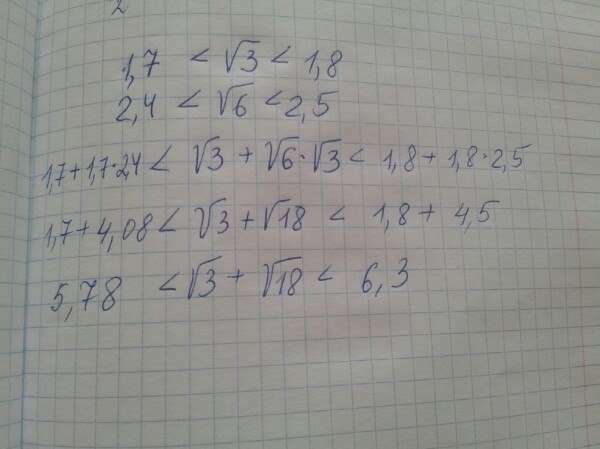 2
1,7 < √3 < 1,8
2,4 < √6 < 2,5
1,7+1,7·2,4 < √3 + √6·√3 < 1,8 + 1,8·2,5
1,7+4,08 < √3 + √18 < 1,8 + 4,5
5,78 < √3 + √18 < 6,3